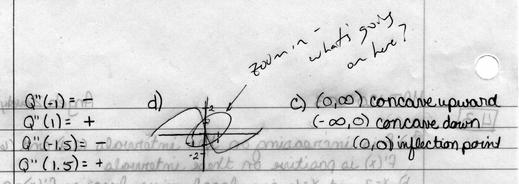 zoom in -
what's going
on here?
Q"(-1) = -
Q"(1) = +
Q"(-1.5) = -
Q"(1.5) = +
d)
2
-2
c) (0,∞) concave upward
(-∞,0) concave down
(0,0) inflection point